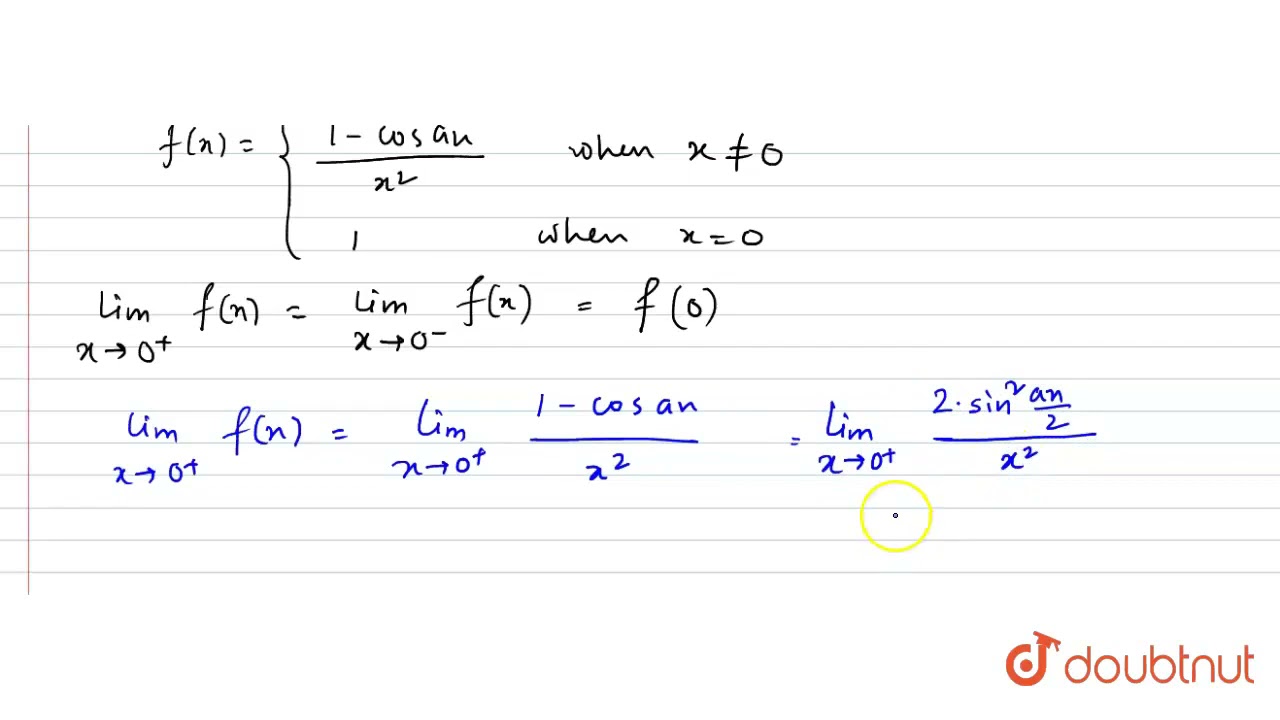 f(x) = { 1 - cos ax / x² when x ≠ 0
1 when x = 0
Lim x→0⁺ f(x) = Lim x→0⁻ f(x) = f(0)
Lim x→0⁺ f(x) = Lim x→0⁺ 1 - cos ax / x² = Lim x→0⁺ 2·sin² ax/2 / x²
doubtnut